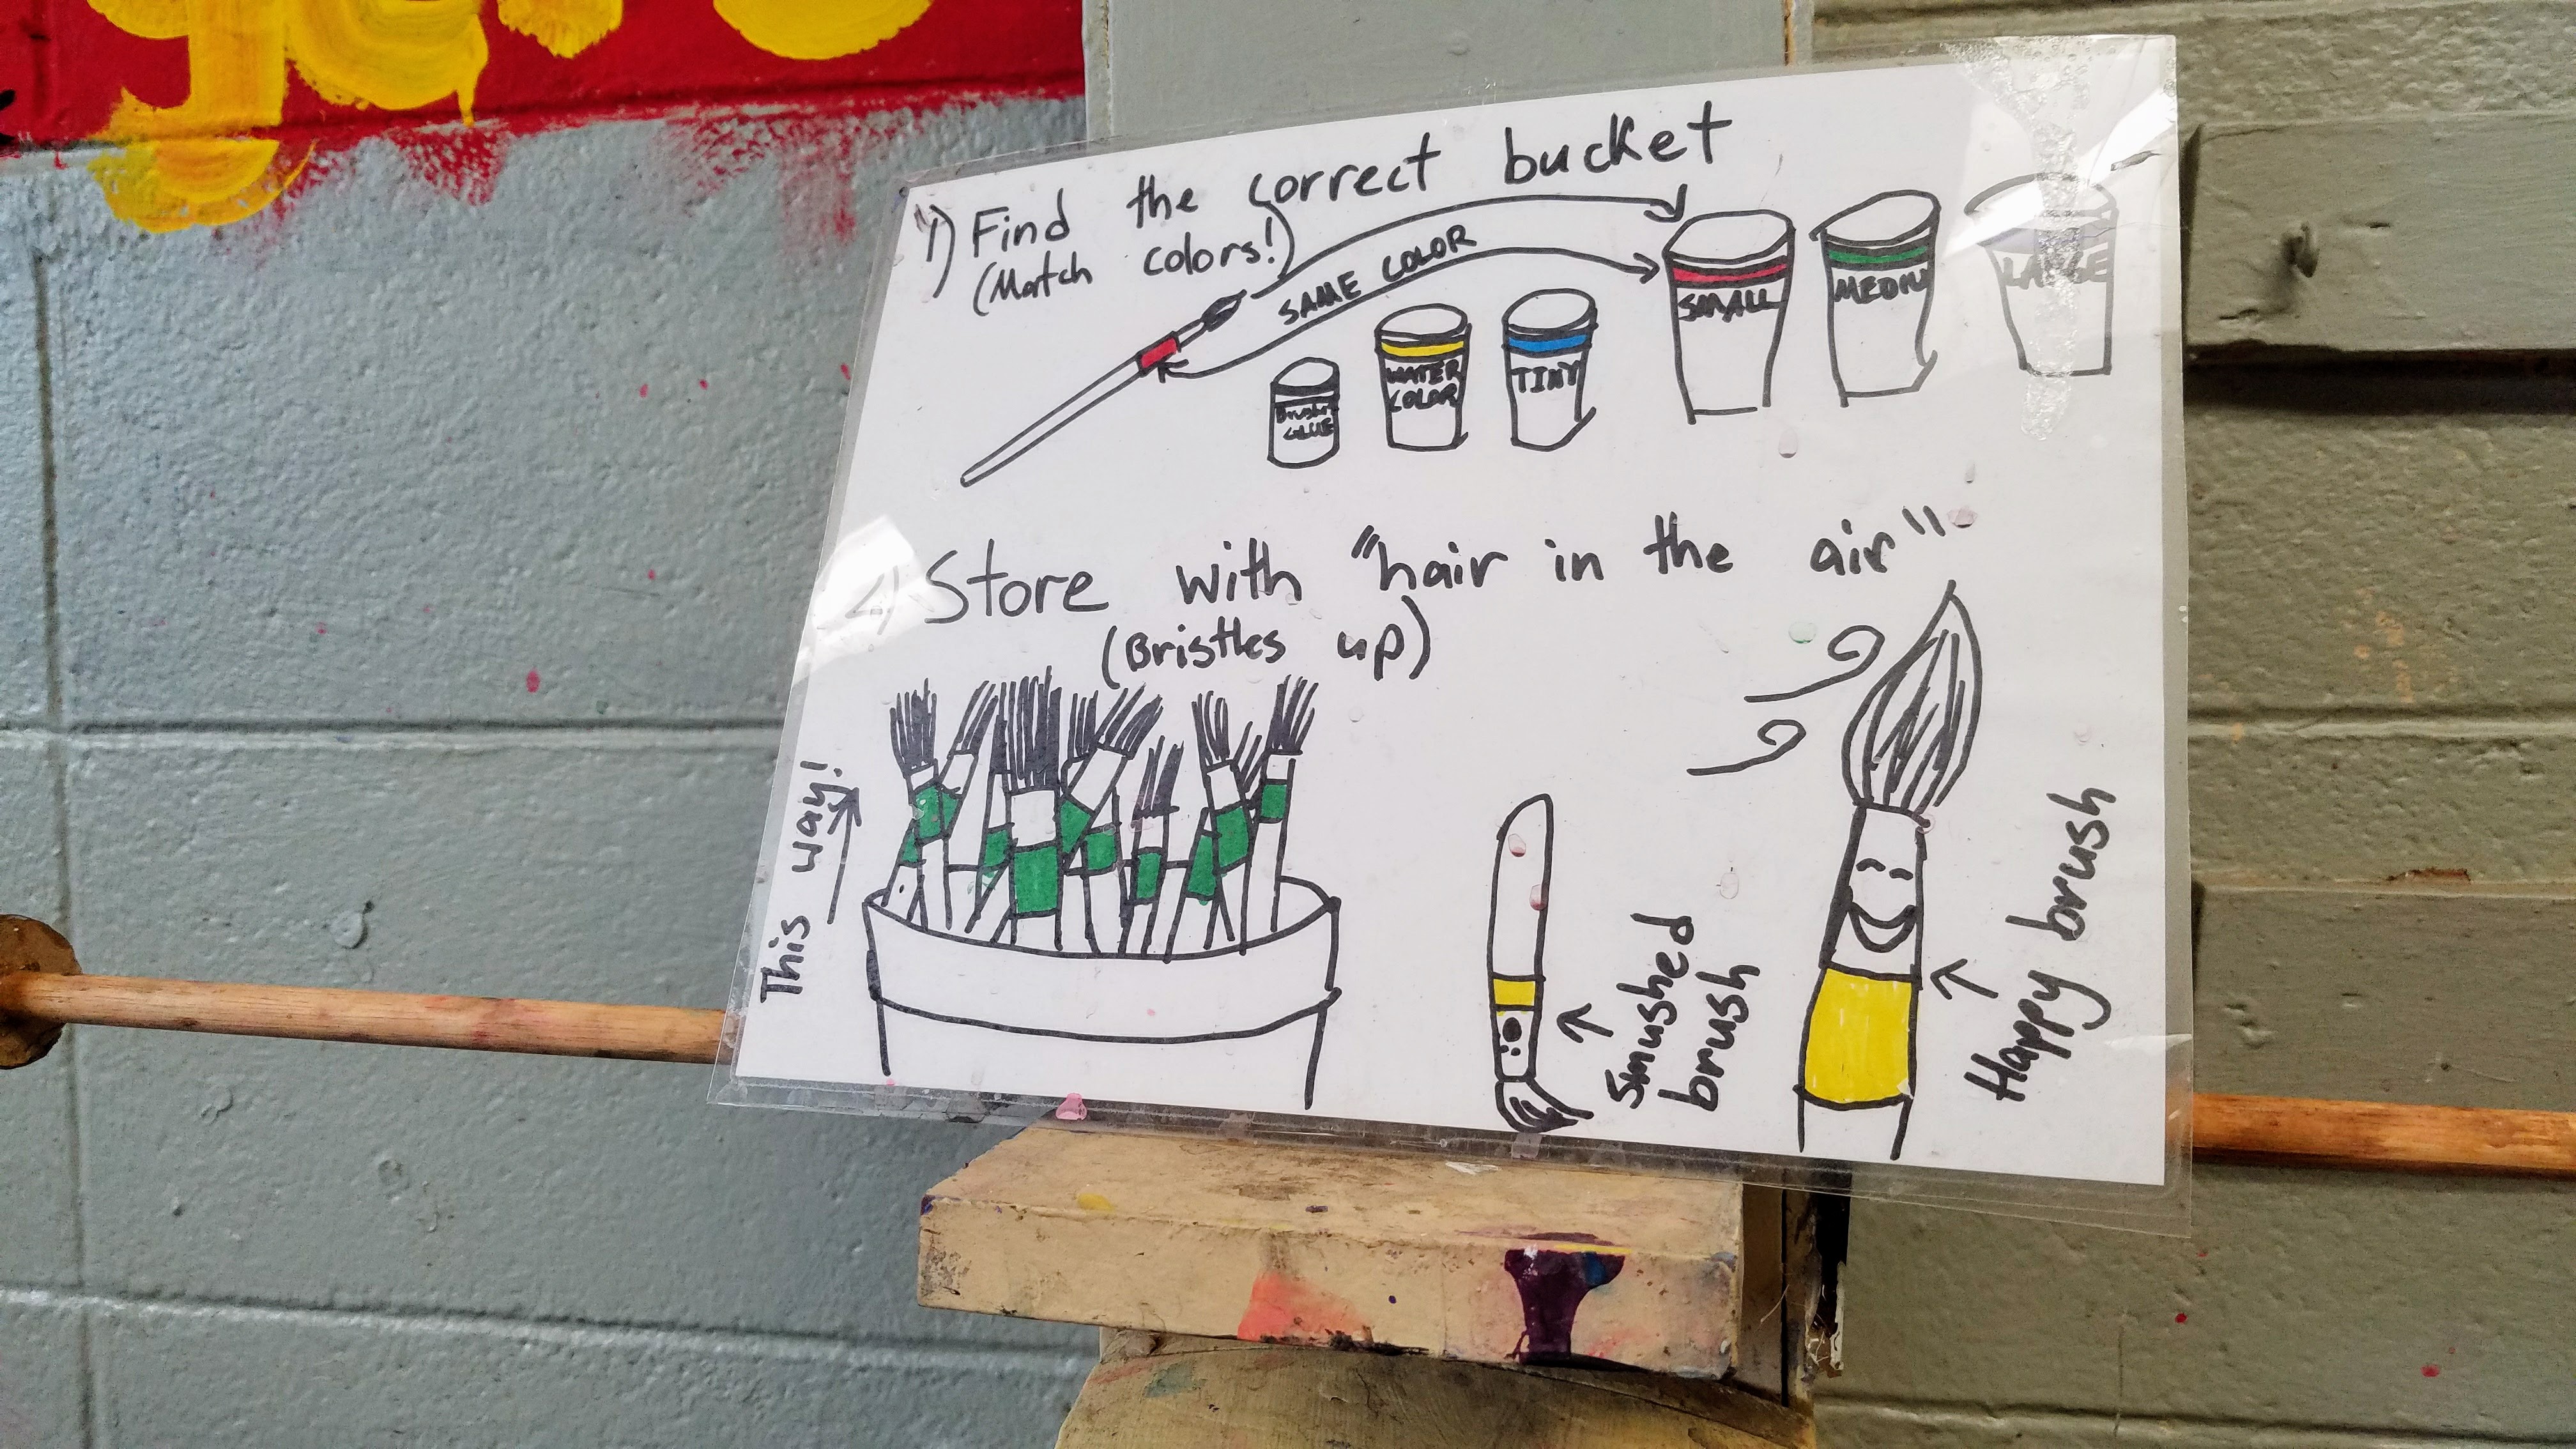 1) Find the correct bucket
(Match colors!)
SAME COLOR
SMALL
MEDIUM
LARGE
WATER
COLOR
TINY
GLUE
Store with "hair in the air"
(Bristles up)
This way!
Smushed
brush
Happy brush